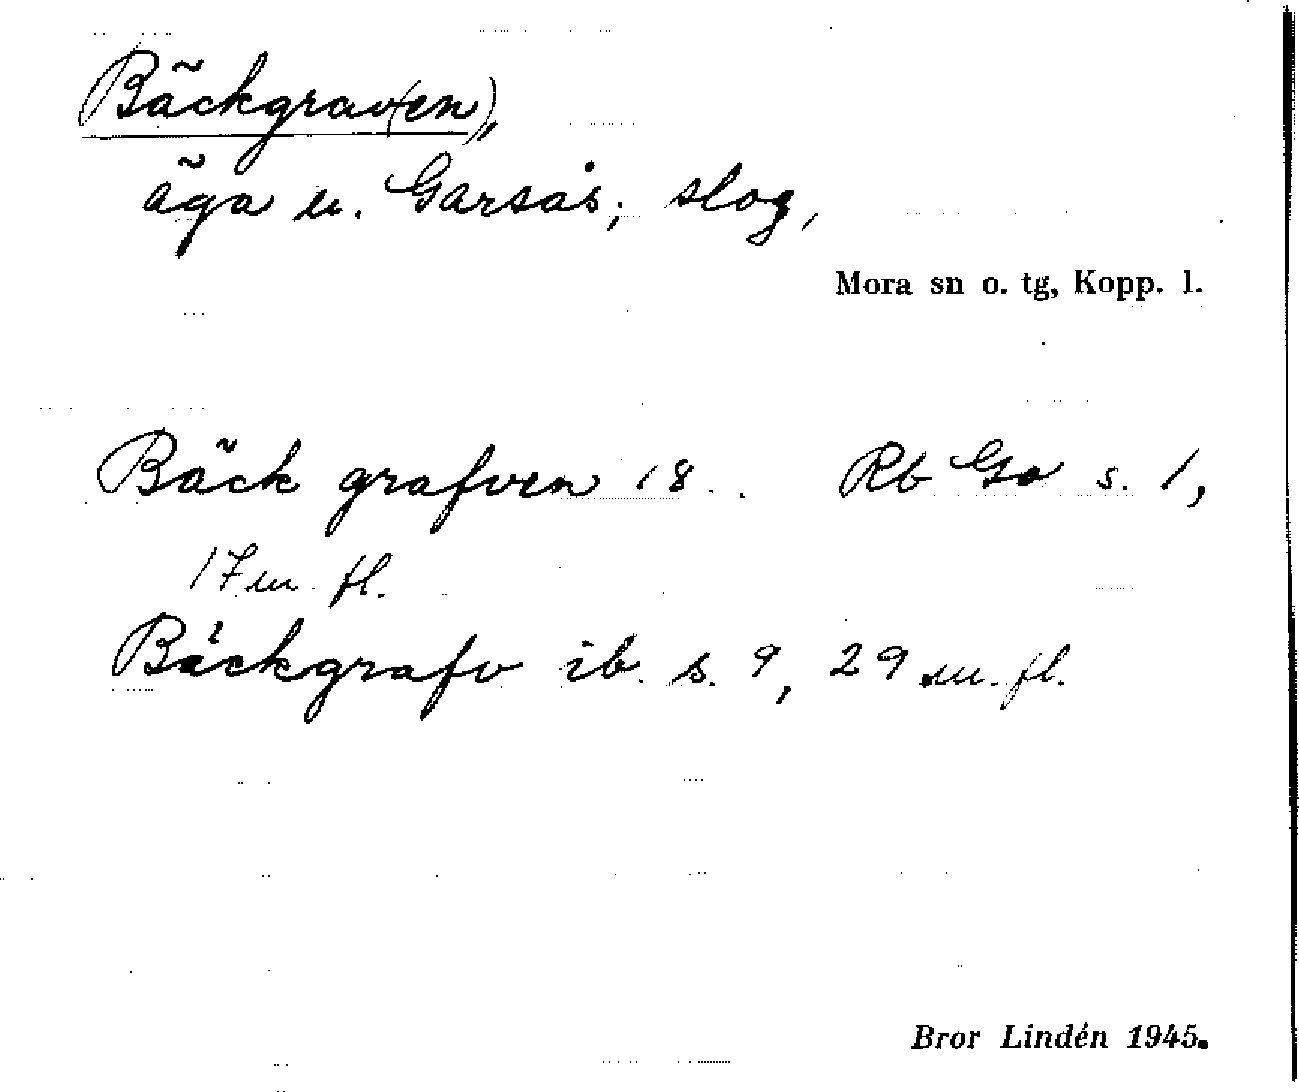 Bäckgrav(en),
äga u. Garsås; slog,
Mora sn o. tg, Kopp. l.
Bäck grafven 18 . . Rb Ga s. 1,
17 m. fl.
Bäckgrafv ib. s. 9, 29 m. fl.
Bror Lindén 1945.